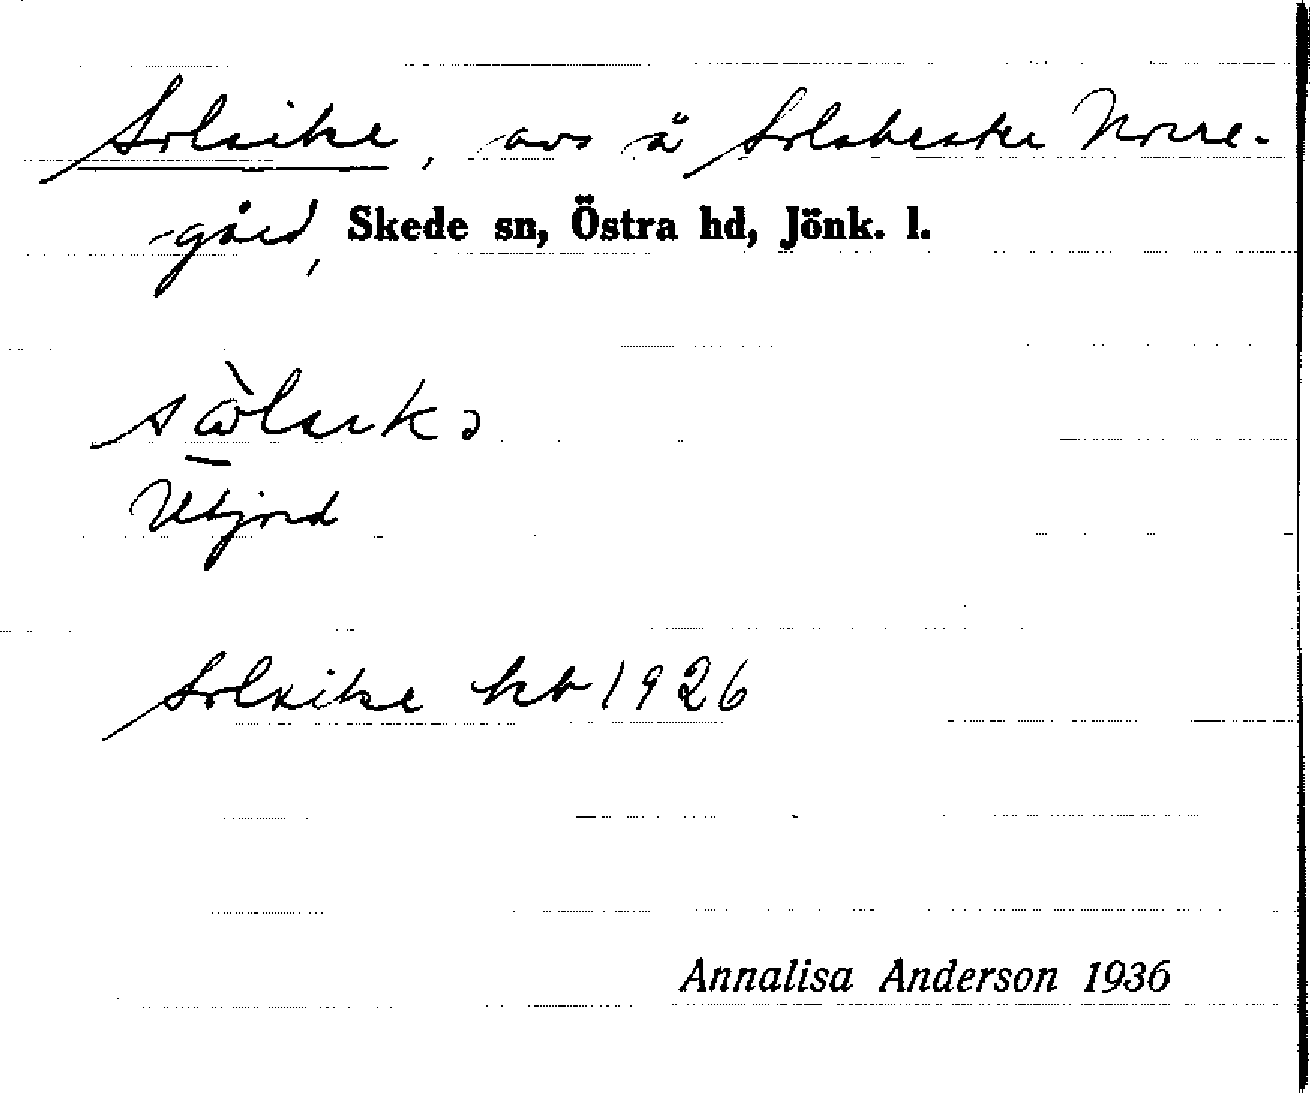 Solvike, avs å Solabeske Norre-
-gård, Skede sn, Östra hd, Jönk. l.
Utjord
Solvike kb 1926
Annalisa Anderson 1936